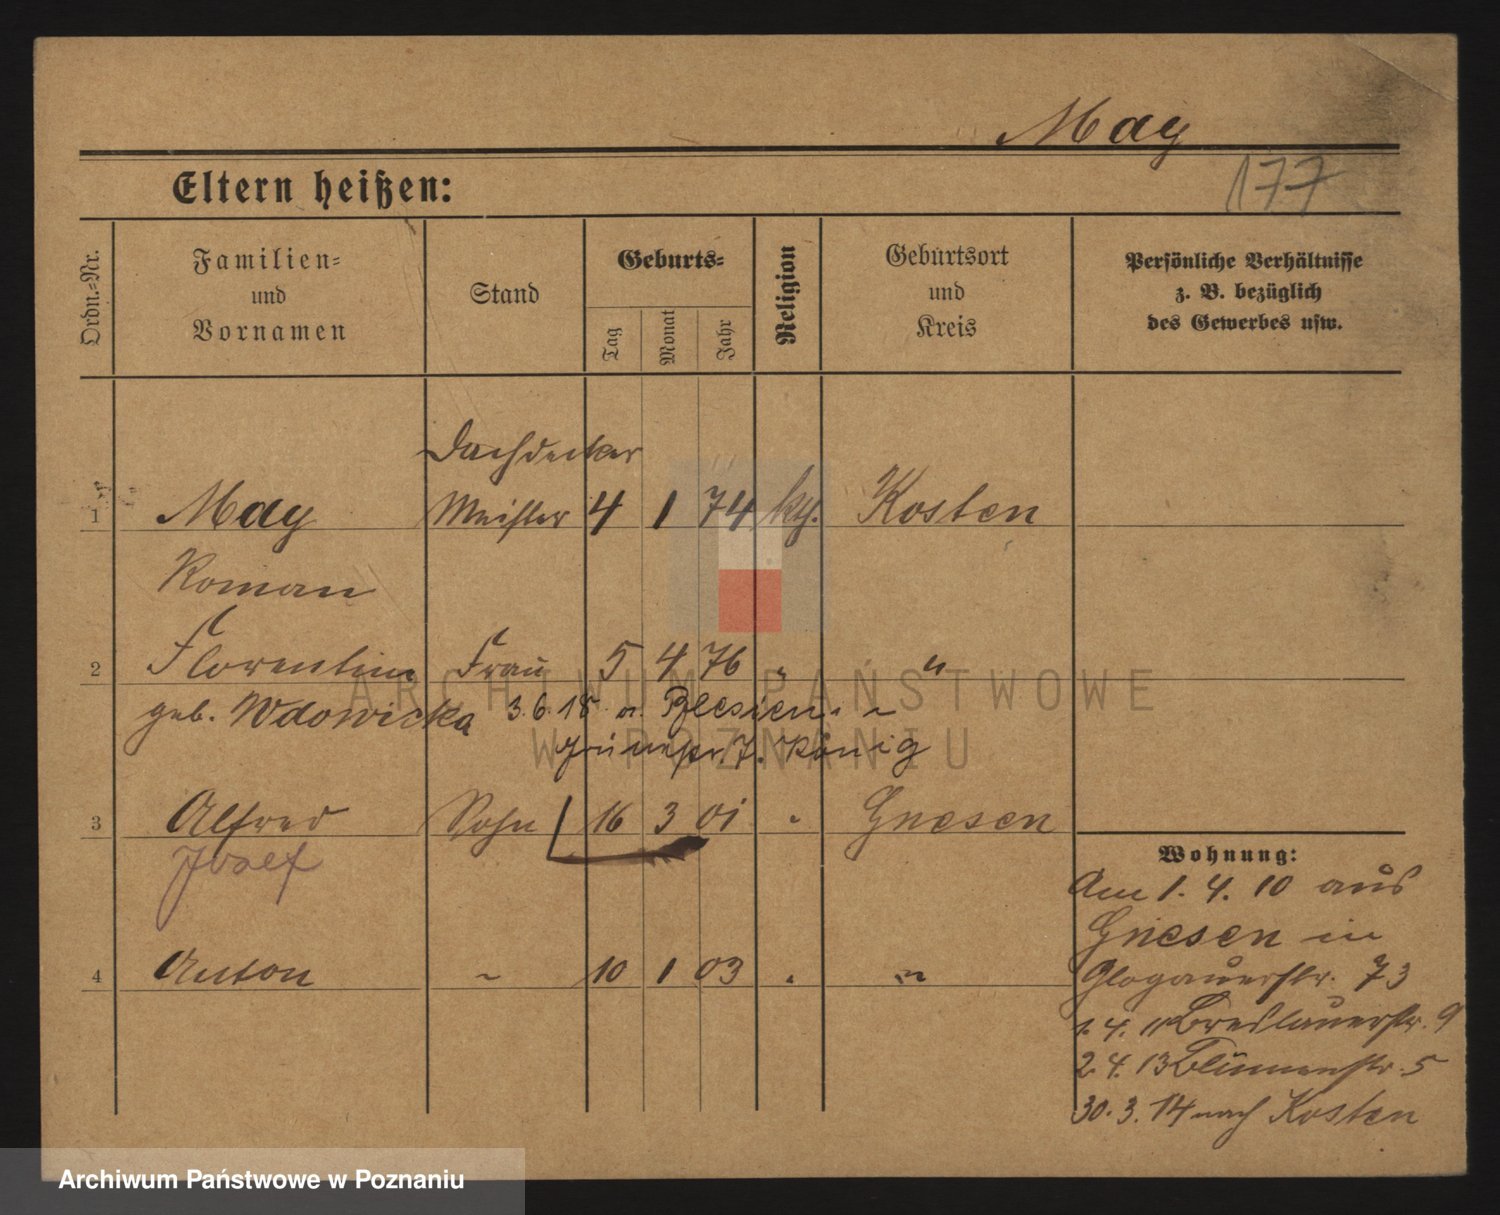 May
177
Eltern heißen:
Ordn.-Nr.
Familien-
und
Vornamen
Stand
Geburts-
Tag
Monat
Jahr
Religion
Geburtsort
und
Kreis
Persönliche Verhältnisse
z. B. bezüglich
des Gewerbes usw.
Dachdecker
1 May Meister 4 1 74 kth. Kosten
Roman
2 Florentine Frau 5 4 76 " "
geb. Wdowicka 3.6.18 a. Blesien
König
3 Alfred Sohn 16 3 01 " Gnesen
Josef
4 Anton " 10 1 03 " "
Wohnung:
Am 1. 4. 10 aus
Gnesen in
Glogauerstr. 73
1. 4. 11 Breslauerstr. 9
2. 4. 13 Blumenstr. 5
30. 3. 14 nach Kosten
ARCHIWUM PAŃSTWOWE
W POZNANIU
Archiwum Państwowe w Poznaniu